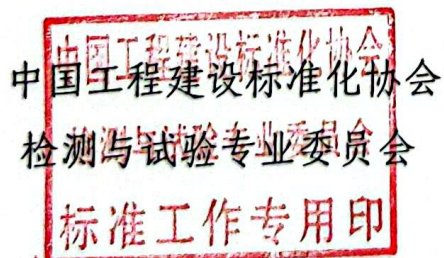 中国工程建设标准化协会
中国工程建设标准化协会
检测与试验专业委员会
检测与试验专业委员会
标准工作专用印